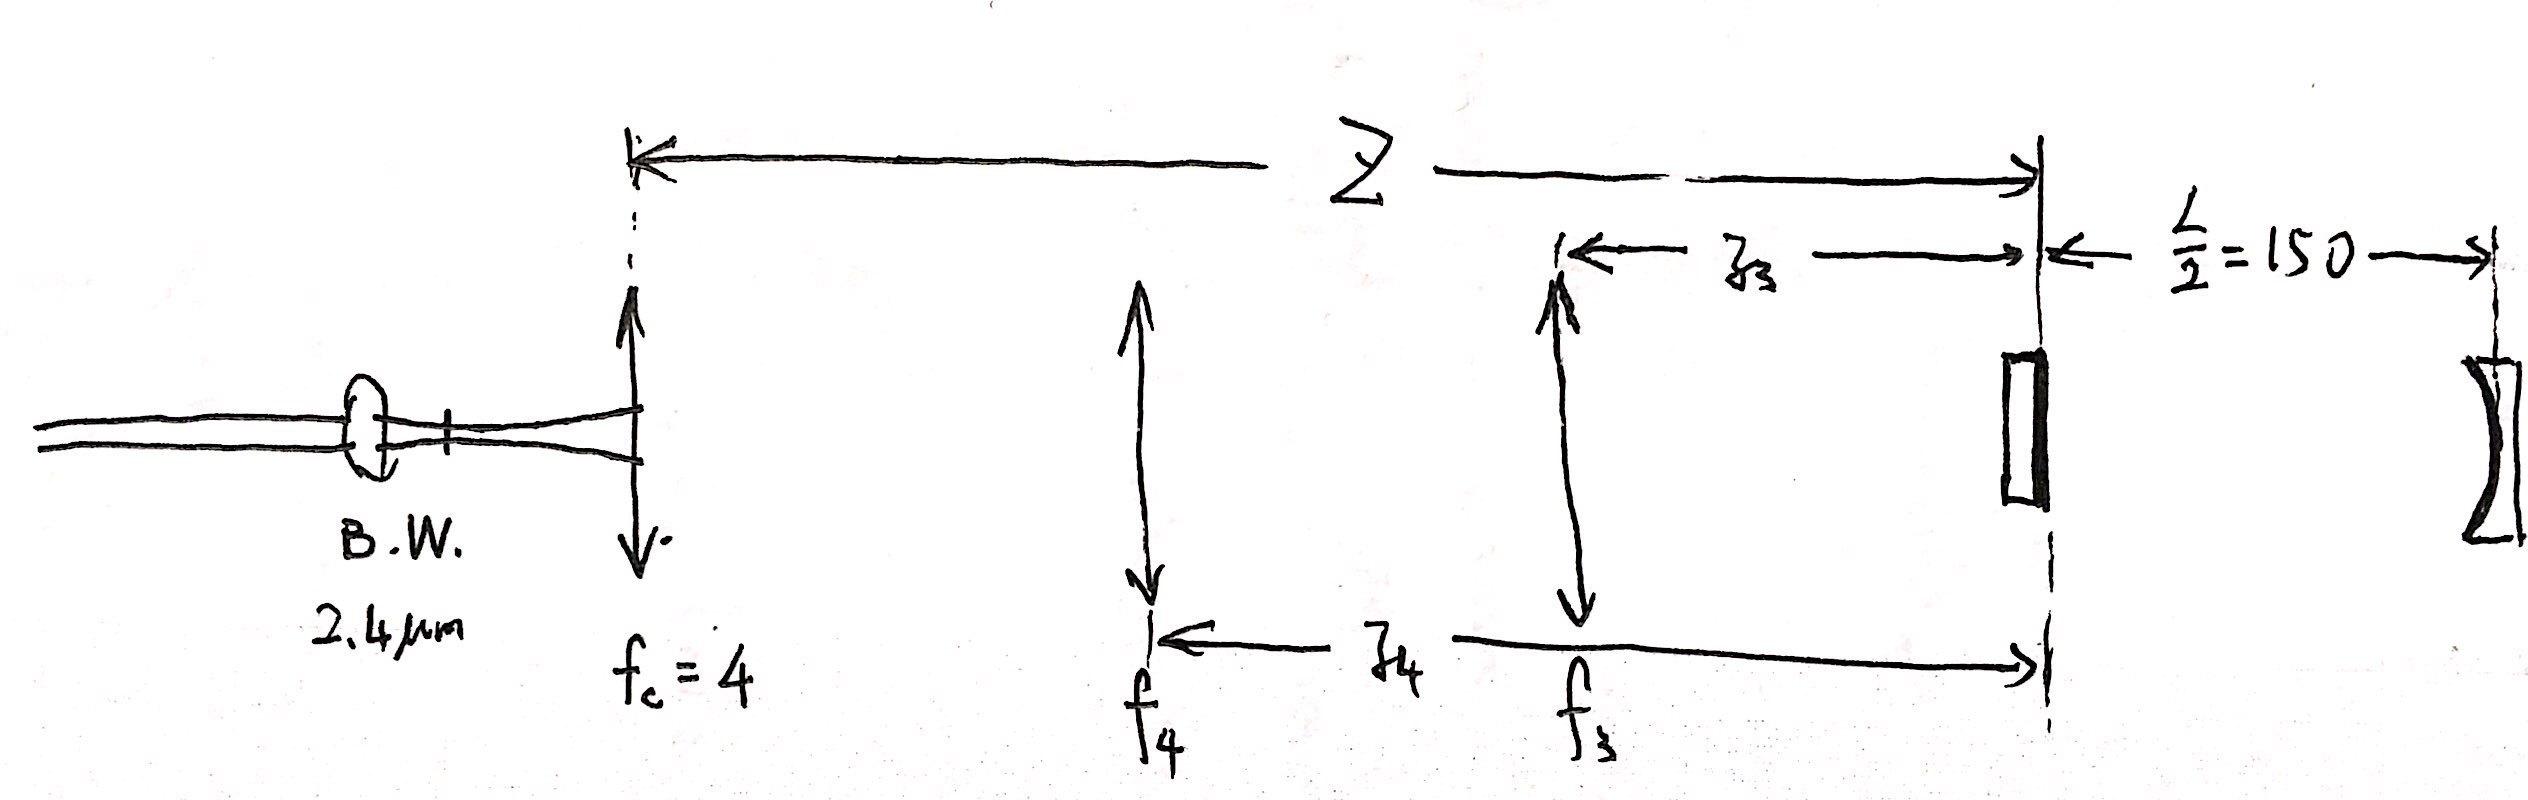 Z
z₃
L/2 = 150
B.W.
2.4 μm
f꜀ = 4
z₄
f₄
f₃